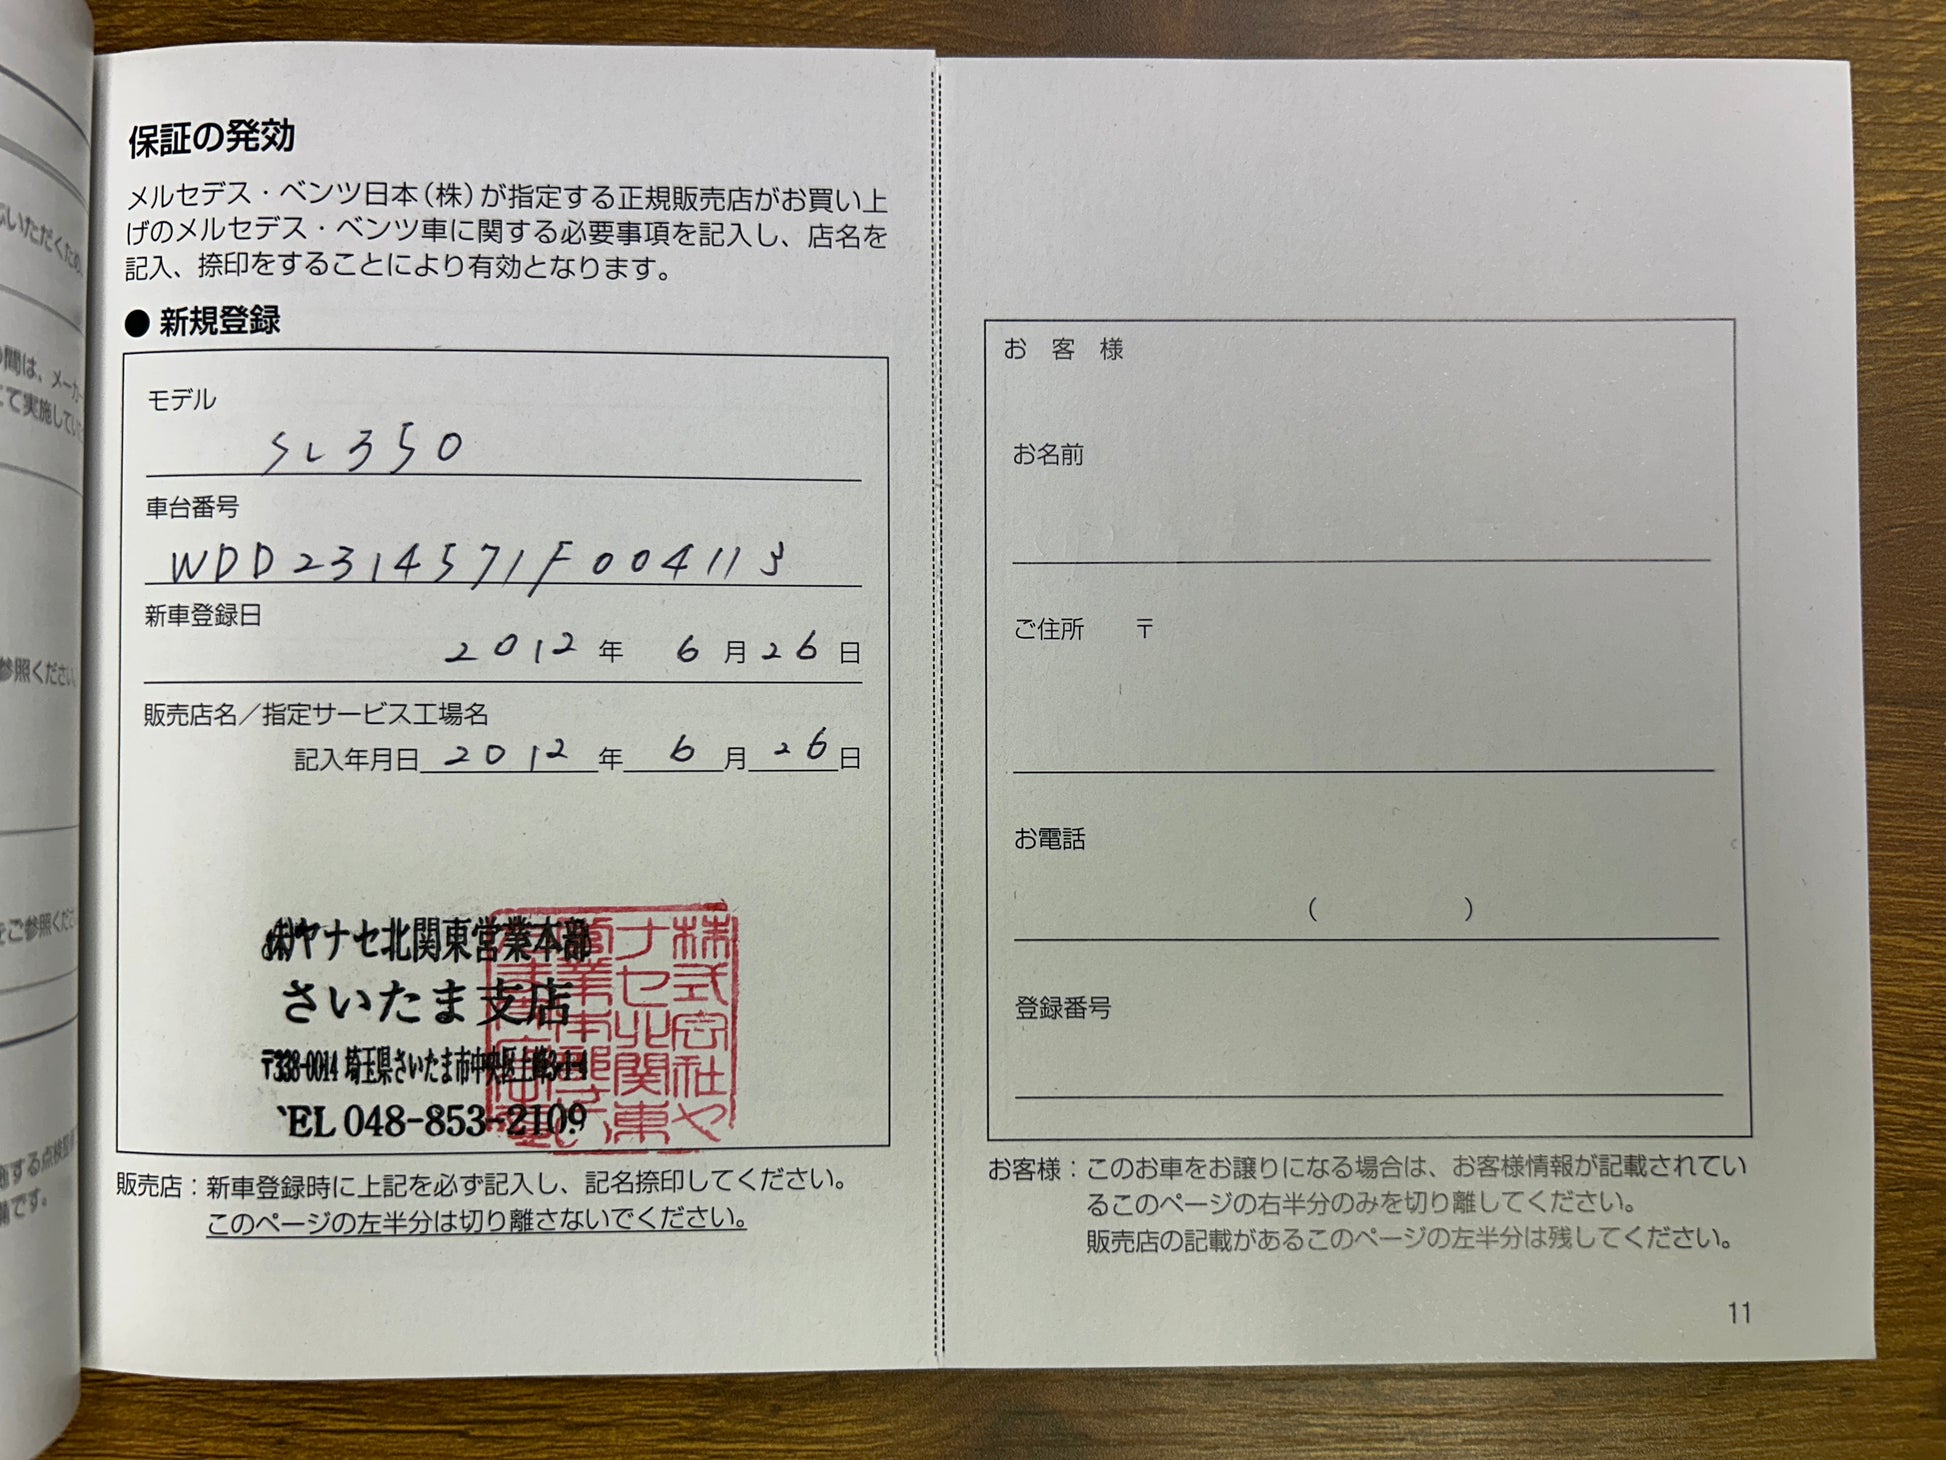 保証の発効
メルセデス・ベンツ日本(株)が指定する正規販売店がお買い上
げのメルセデス・ベンツ車に関する必要事項を記入し、店名を
記入、捺印をすることにより有効となります。
● 新規登録
モデル
SL350
車台番号
WDD2314571F004113
新車登録日
2012 年 6 月 26 日
販売店名／指定サービス工場名
記入年月日 2012 年 6 月 26 日
㈱ヤナセ北関東営業本部
さいたま支店
〒338-0014 埼玉県さいたま市中央区上峰3-1-4
TEL 048-853-2109
株式会社ヤ
ナセ北関東
営業本部
販売店：新車登録時に上記を必ず記入し、記名捺印してください。
このページの左半分は切り離さないでください。
お客様
お名前
ご住所 〒
お電話
( )
登録番号
お客様：このお車をお譲りになる場合は、お客様情報が記載されてい
るこのページの右半分のみを切り離してください。
販売店の記載があるこのページの左半分は残してください。
11
いただくため、
間は、メーカー
て実施してい
参照ください。
ご参照くだ
する点検
です。